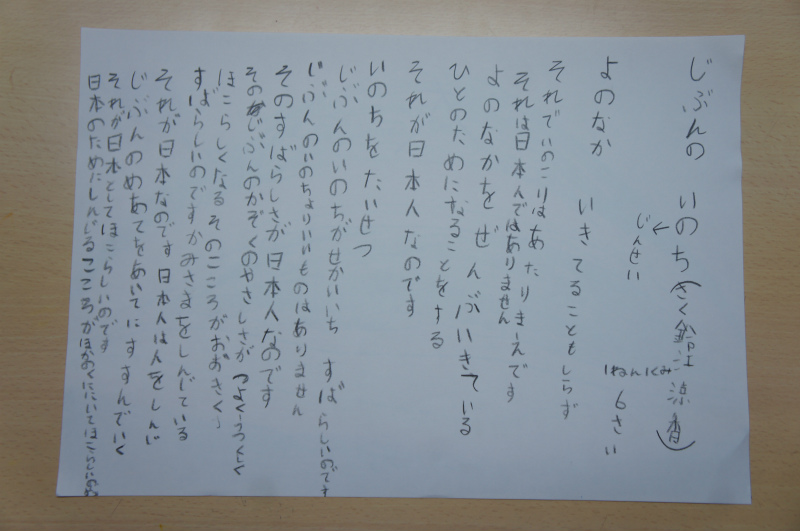 じぶんの いのち(さく鈴江涼香)
じんせい
1ねん1くみ 6さい
よのなか いきてることもしらず
それでいのこりはあたりまえです
それは日本人ではありません
よのなかを ぜんぶいきている
ひとのためになることをする
それが日本人なのです
いのちをたいせつ
じぶんのいのちがせかいいち すばらしいのです
じぶんのいのちよりいいものはありません
そのすばらしさが日本人なのです
そのじぶんのかぞくのやさしさが つよくうつくしく
ほこらしくなるそのこころがおおきく」
すばらしいのですかみさまをしんじている
それが日本なのです日本人は人をしんじ
じぶんのめあてをおいてにすすんでいく
それが日本としてほこらしいのです
日本のためにしんじるこころが